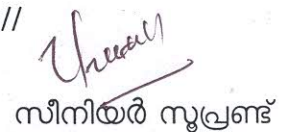 //
സീനിയർ സൂപ്രണ്ട്